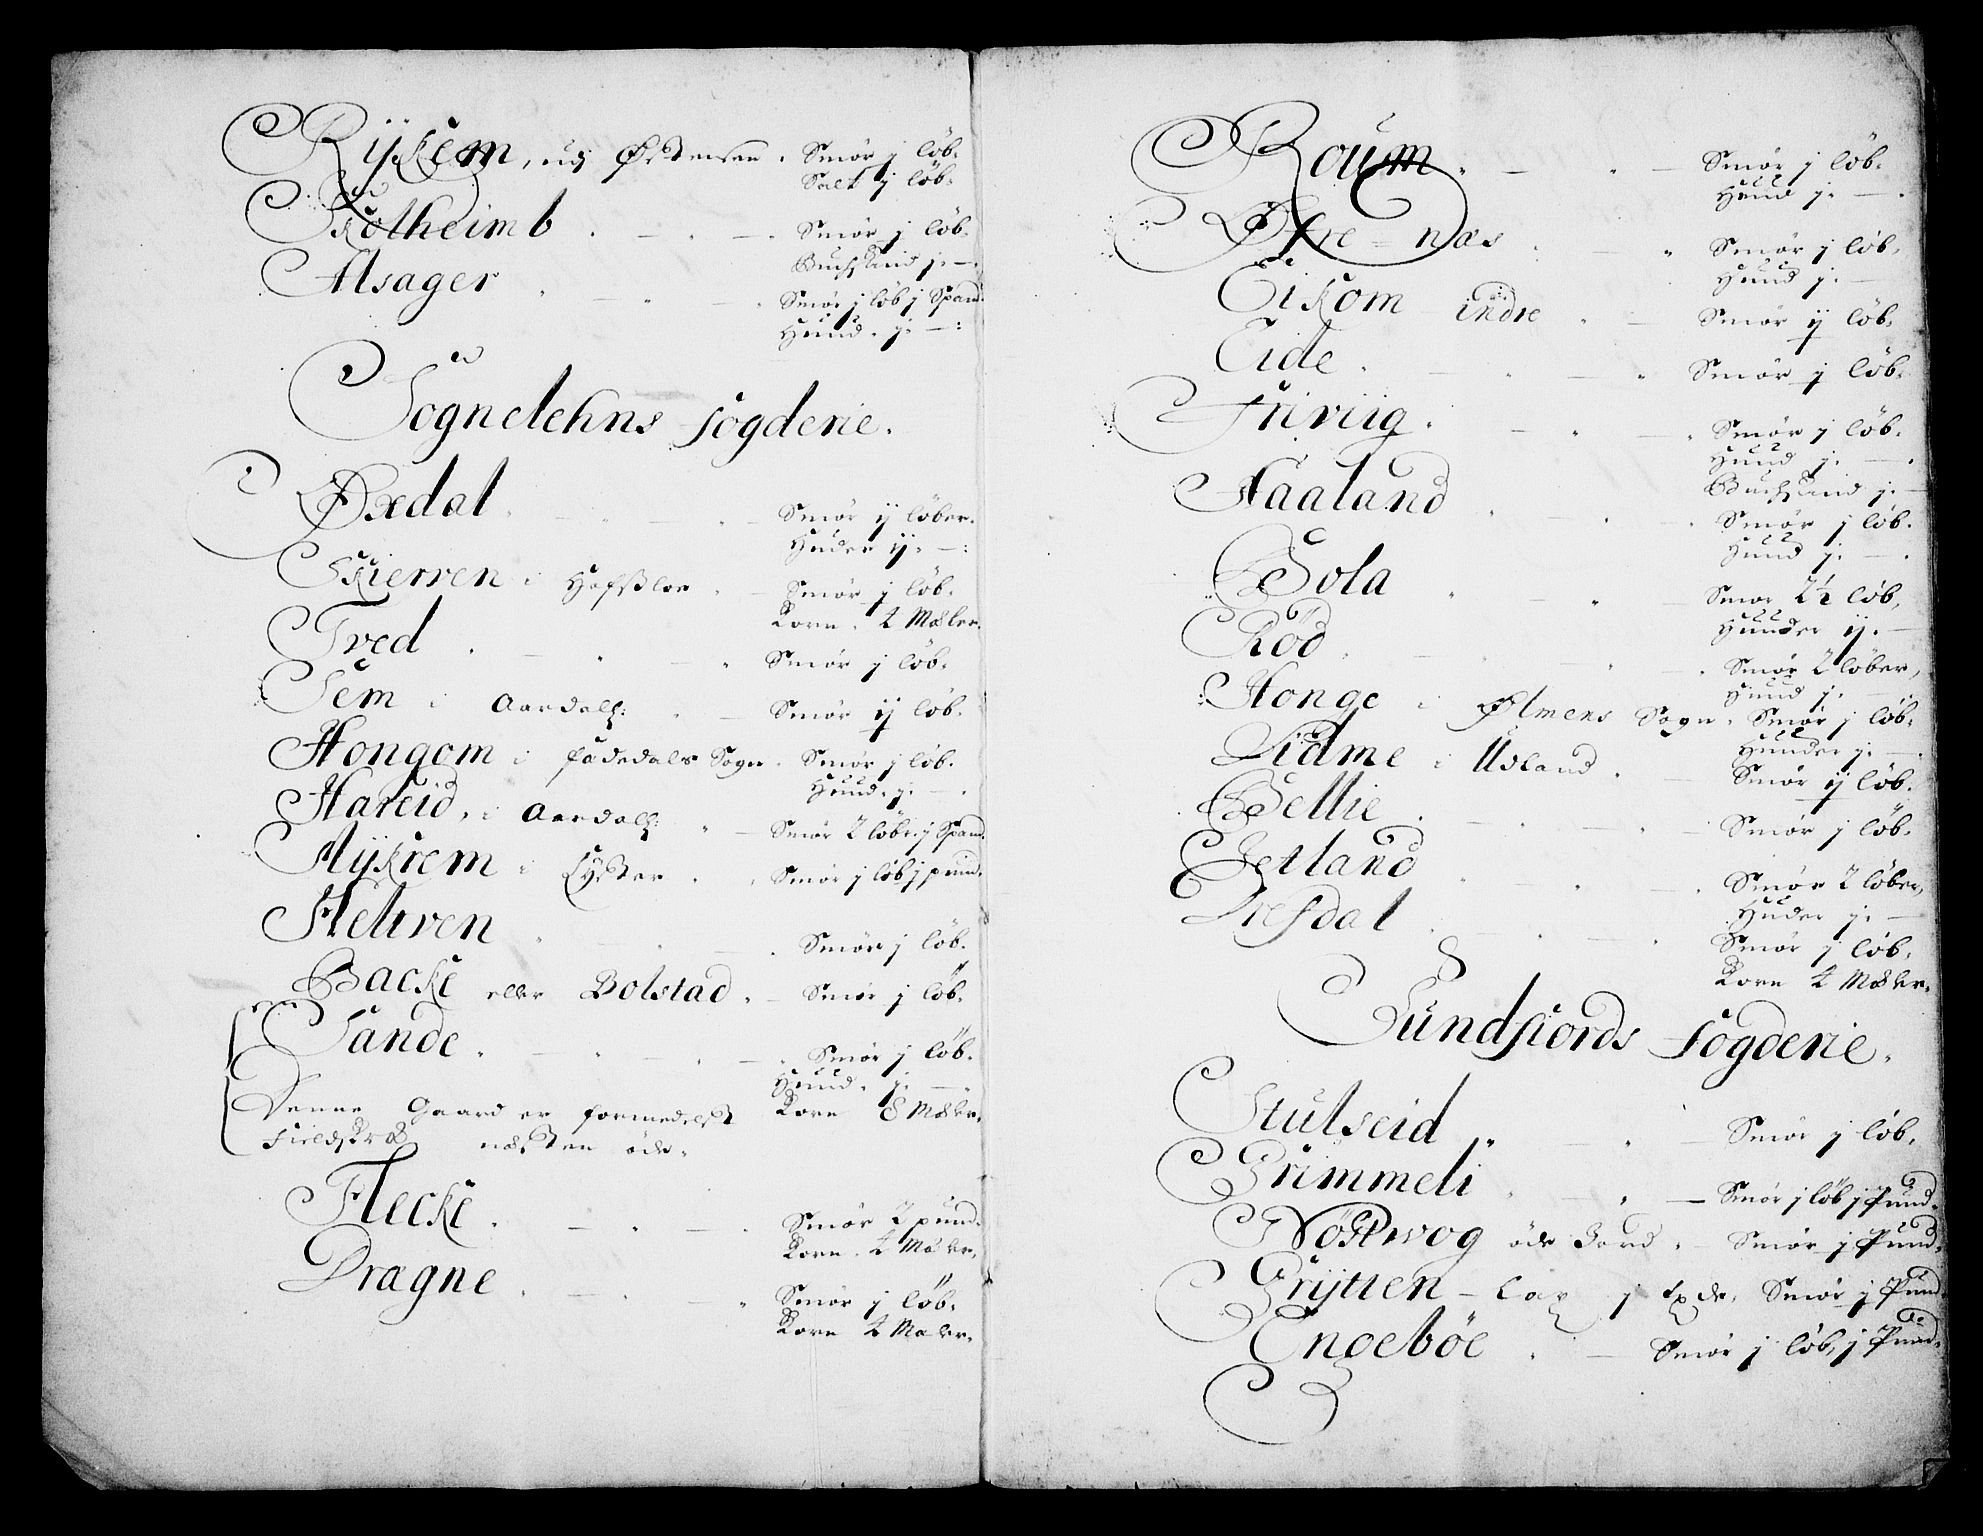 Rÿkem, udj Østensøe. Smør j løb.
Salt j løb.
Skotheimb . — . — . Smør j løb.
Buchskind j. — .
Alsager . — . — . Smør j løb j Spand.
Huud. j. — :
Sognelehns fogderie.
Øxdal . — . — . — Smør ij løber.
Huder ij. — :
Skierren i Hafsloe . — Smør j løb.
Korn. 4 Mæler.
Tved . — . — . Smør j løb.
Sem i Aardall: . — Smør ij løb.
Hongom i Sogn. Smør j løb.
Huud. j. — .
Hareid, i Aardall: . — Smør 2 løb: j Spand.
Nÿkrem i Lyster . . Smør j løb j pund.
Heltven . — . — . Smør j løb.
Backe eller Bolstad. — Smør j løb.
Sande . — . — . — . Smør j løb.
Huud. j. — .
Denne Gaard er formedelst Korn 8 Mæler.
Fieldskred næsten øde.
Flecke . — . — . Smør 2 pund.
Korn. 4 Mæler.
Dragne . — . — . Smør j løb.
Korn 4 Mæler.
Roum . — . — Smør j løb.
Huud j. — .
Øfre-næs . — . Smør j løb.
Huud j. —
Eikom indre . — Smør ij løb.
Eide . — . — . Smør j løb.
Friviig . — . — . Smør j løb.
Huud j. — .
Buchskind j. —
Haaland . — . — . Smør j løb.
Huud j. — .
Bola . — . — Smør 2½ løb,
Huuder ij. —
Röd . — . — . Smør 2 løber,
Huud j. —
Honge i Ølmens Sogn. Smør j løb.
Huuder j. — .
Lidme i Udland . — Smør ij løb.
Bellie . — . — Smør j løb.
Getland . — . — . Smør 2 løber,
Huder j. —
Drefdal . — . — . Smør j løb,
Korn 4 Mæler.
Sundfiords fogderie.
Stulseid . — . — Smør j løb,
Grimmeli . — . — Smør j løb j Pund.
Nöstwog øde Jord. — Smør j Pund.
Grÿtten – j Smør j Pund.
Engeböe . — Smør j løb, j Pund.